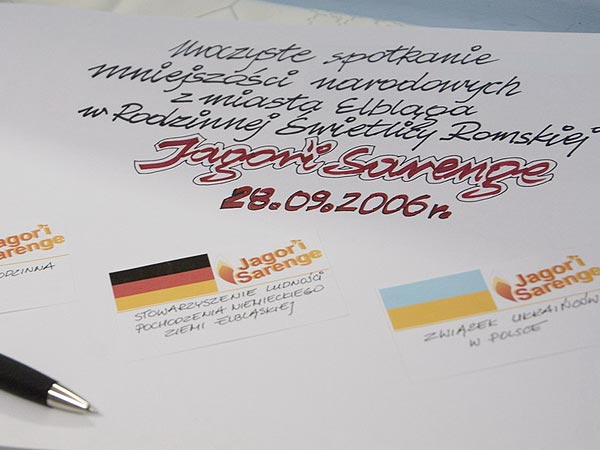 Uroczyste spotkanie
mniejszości narodowych
z miasta Elbląga
w Rodzinnej Świetlicy Romskiej
Jagori Sarenge
28.09.2006 r.
Jagor'i
Sarenge
ODZINNA
Jagor'i
Sarenge
STOWARZYSZENIE LUDNOŚCI
POCHODZENIA NIEMIECKIEGO
ZIEMI ELBLĄSKIEJ
Jagor'i
Sarenge
ZWIĄZEK UKRAIŃCÓW
W POLSCE